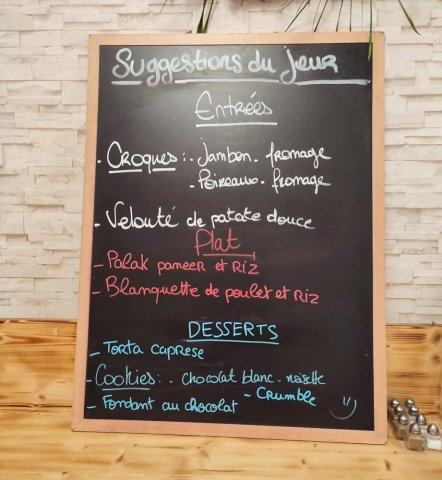 Suggestions du jour
Entrées
- Croques : - Jambon - fromage
- Poireaux - fromage
- Velouté de patate douce
Plat
- Palak paneer et Riz
- Blanquette de poulet et Riz
DESSERTS
- Torta caprese
- Cookies : - chocolat blanc - noisette
- Crumble
- Fondant au chocolat